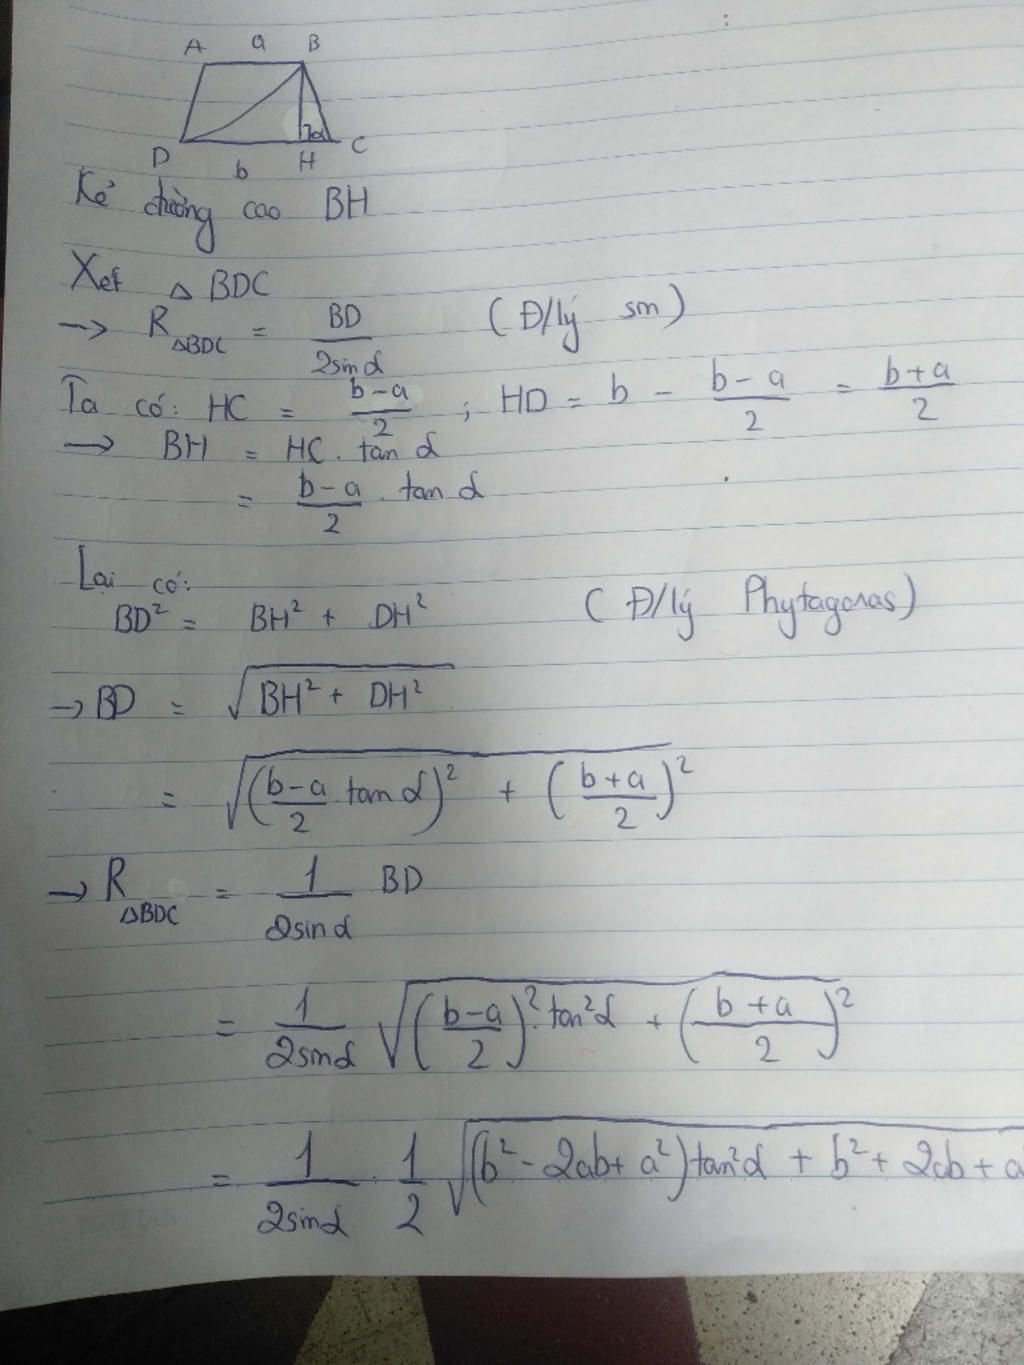 A a B
D b H α C
Kẻ đường cao BH
Xét △ BDC
→ R△BDC = BD / 2sin α (Đ/lý sin)
Ta có: HC = b-a / 2 ; HD = b - b-a / 2 = b+a / 2
→ BH = HC . tan α
= b-a / 2 . tan α
Lại có:
BD² = BH² + DH² (Đ/lý Phytagoras)
→ BD = √(BH² + DH²)
= √((b-a / 2 tan α)² + (b+a / 2)²)
→ R△BDC = 1 / 2sin α BD
= 1 / 2sin α √((b-a / 2)² . tan² α + (b+a / 2)²)
= 1 / 2sin α . 1 / 2 √((b² - 2ab + a²) tan² α + b² + 2ab + a